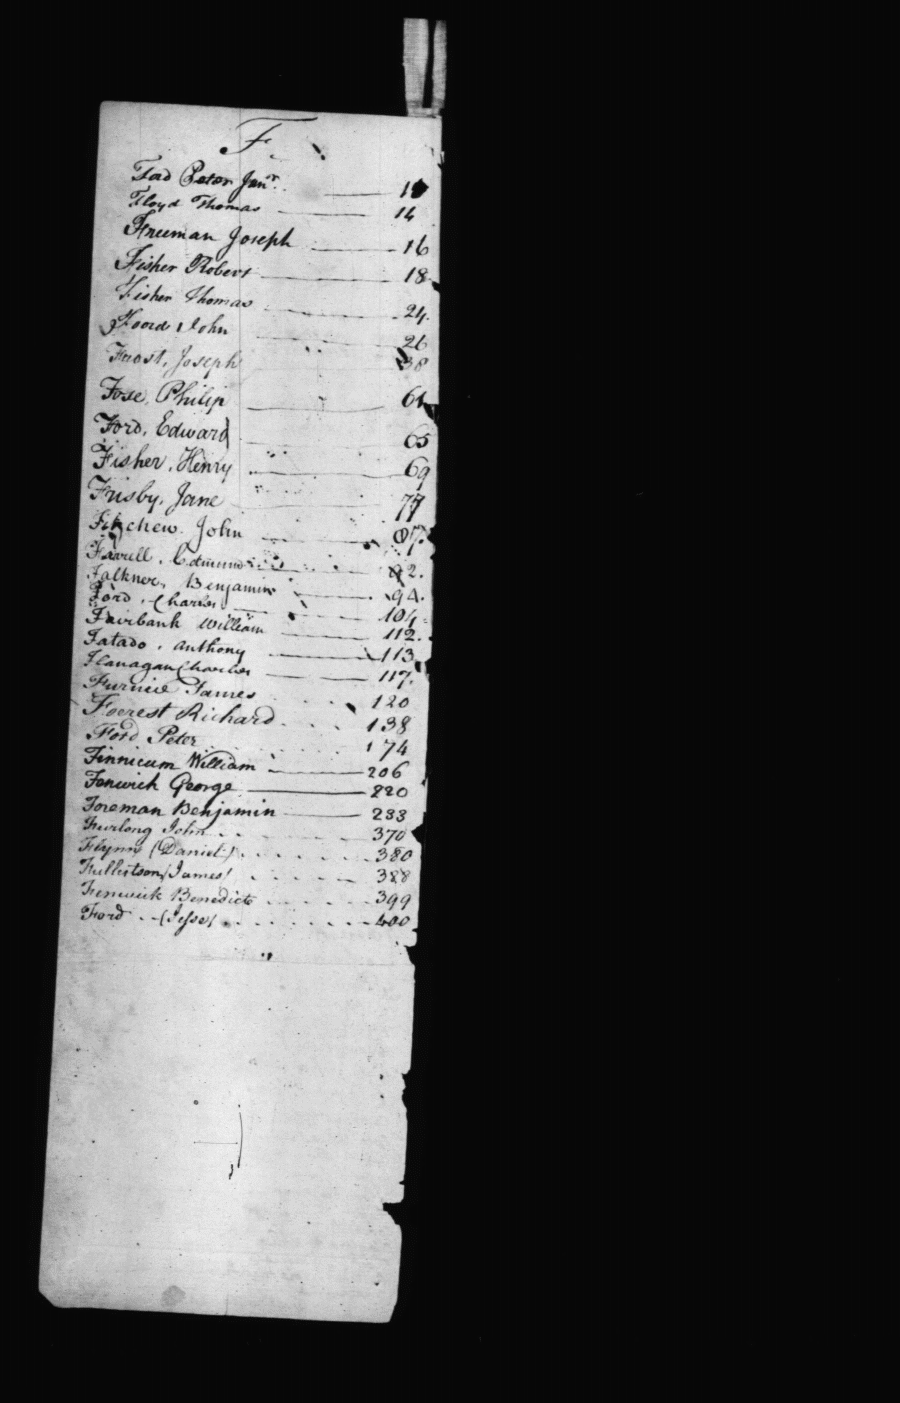 F
Ford Peter Junr.
Floyd Thomas 14
Freeman Joseph 16
Fisher Robert 18
Fisher Thomas 24
Foord John 26
Frost, Joseph 38
Fose, Philip 61
Ford, Edward 65
Fisher, Henry 69
Frisby, Jane 77
John 87
Farrell, Edmund 92.
Falkner, Benjamin 94.
Ford, Charles 104
Fairbank William 112.
Fatado, Anthony 113
Flanagan Charles 117.
Furnice James 120
Forrest Richard 138
Ford Peter 174
Finnicum William 206
Fenwick George 220
Foreman Benjamin 233
Furlong John 370
Flynn (Daniel) 380
Fullertson (James) 388
Fenwick Benedict 399
Ford (Jesse) 400